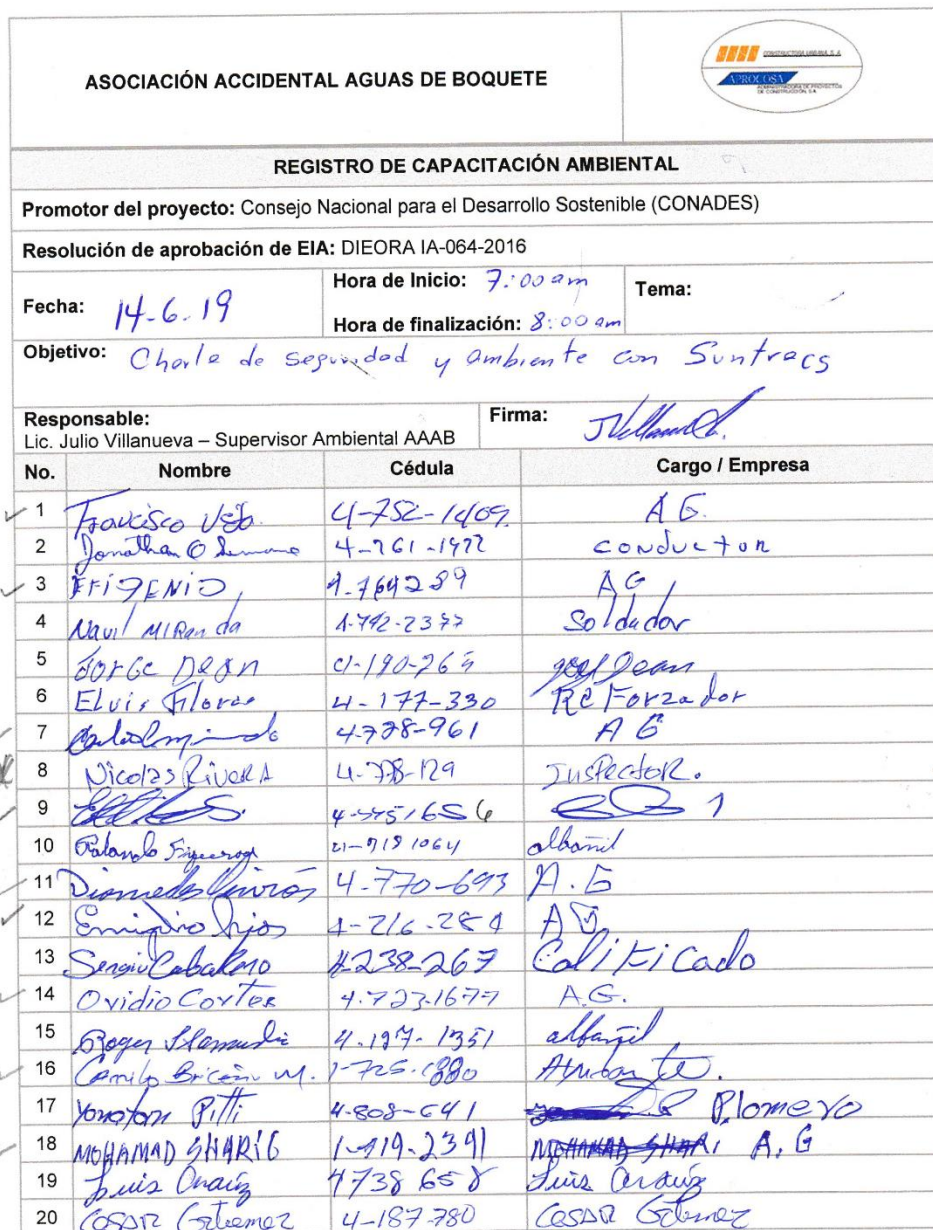 ASOCIACIÓN ACCIDENTAL AGUAS DE BOQUETE
CONSTRUCTORA URBANA, S.A.
APROCOSA
ADMINISTRADORA DE PROYECTOS
DE CONSTRUCCIÓN, S.A.
REGISTRO DE CAPACITACIÓN AMBIENTAL
Promotor del proyecto: Consejo Nacional para el Desarrollo Sostenible (CONADES)
Resolución de aprobación de EIA: DIEORA IA-064-2016
Fecha: 14-6-19 Hora de Inicio: 7:00 am Tema:
Hora de finalización: 8:00 am
Objetivo: Charla de seguridad y ambiente con Suntracs
Responsable: Firma: JVillanueva
Lic. Julio Villanueva – Supervisor Ambiental AAAB
No. Nombre Cédula Cargo / Empresa
1 Francisco Vega 4-752-1409 A G.
2 Jonathan O 4-761-1477 conductor
3 EFIGENIO 4.769289 AG
4 Navil MIRanda 4-792-2377 Soldador
5 Jorge Dean 4-190-264 Dean
6 Elvis Flores 4-177-330 ReForzador
7 4-728-961 A G
8 Nicolas RiveRA 4-778-129 InsPectoR.
9
10 Rolando Figueroa albañil
11 Diomedes Quiros 4-770-693 A.G
12 Emigdio Rios 4-216-284 AG
13 Sergio Caballero 4-238-267 CaliFiCado
14 Ovidio Cortes 4-723-1677 A.G.
15 Roger 4-197-1351 albañil
16 Camilo Briceño M. 1-725-1880 Ayudante.
17 Yonatan Pitti 4-808-641 Plomero
18 MOHAMAD SHARIG 1-719-2391 A.G
19 Luis Arauz 4738 658 Luis Arauz
20 CESAR Gutierrez 4-187-780 CESAR Gutierrez